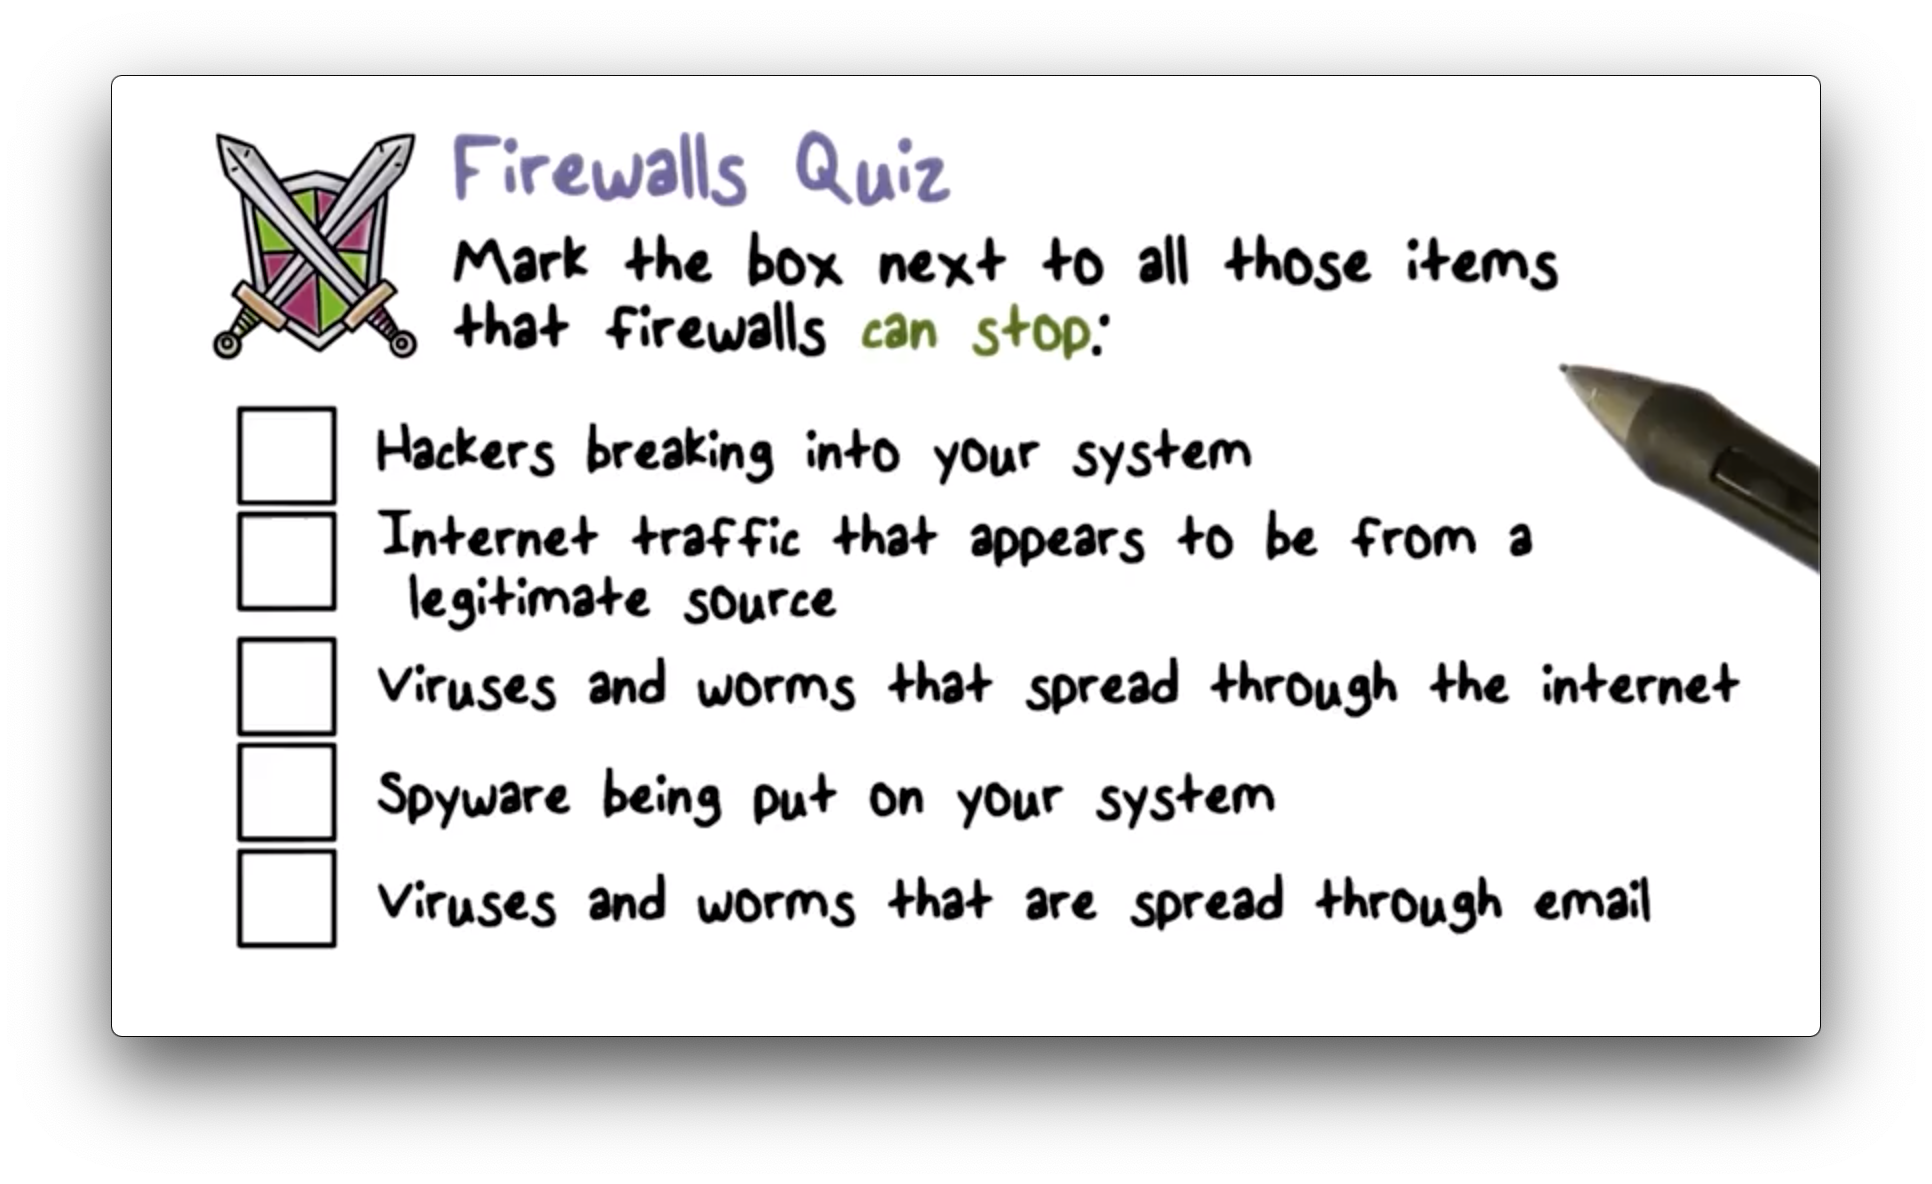 Firewalls Quiz
Mark the box next to all those items
that firewalls can stop:
Hackers breaking into your system
Internet traffic that appears to be from a
legitimate source
Viruses and worms that spread through the internet
Spyware being put on your system
Viruses and worms that are spread through email